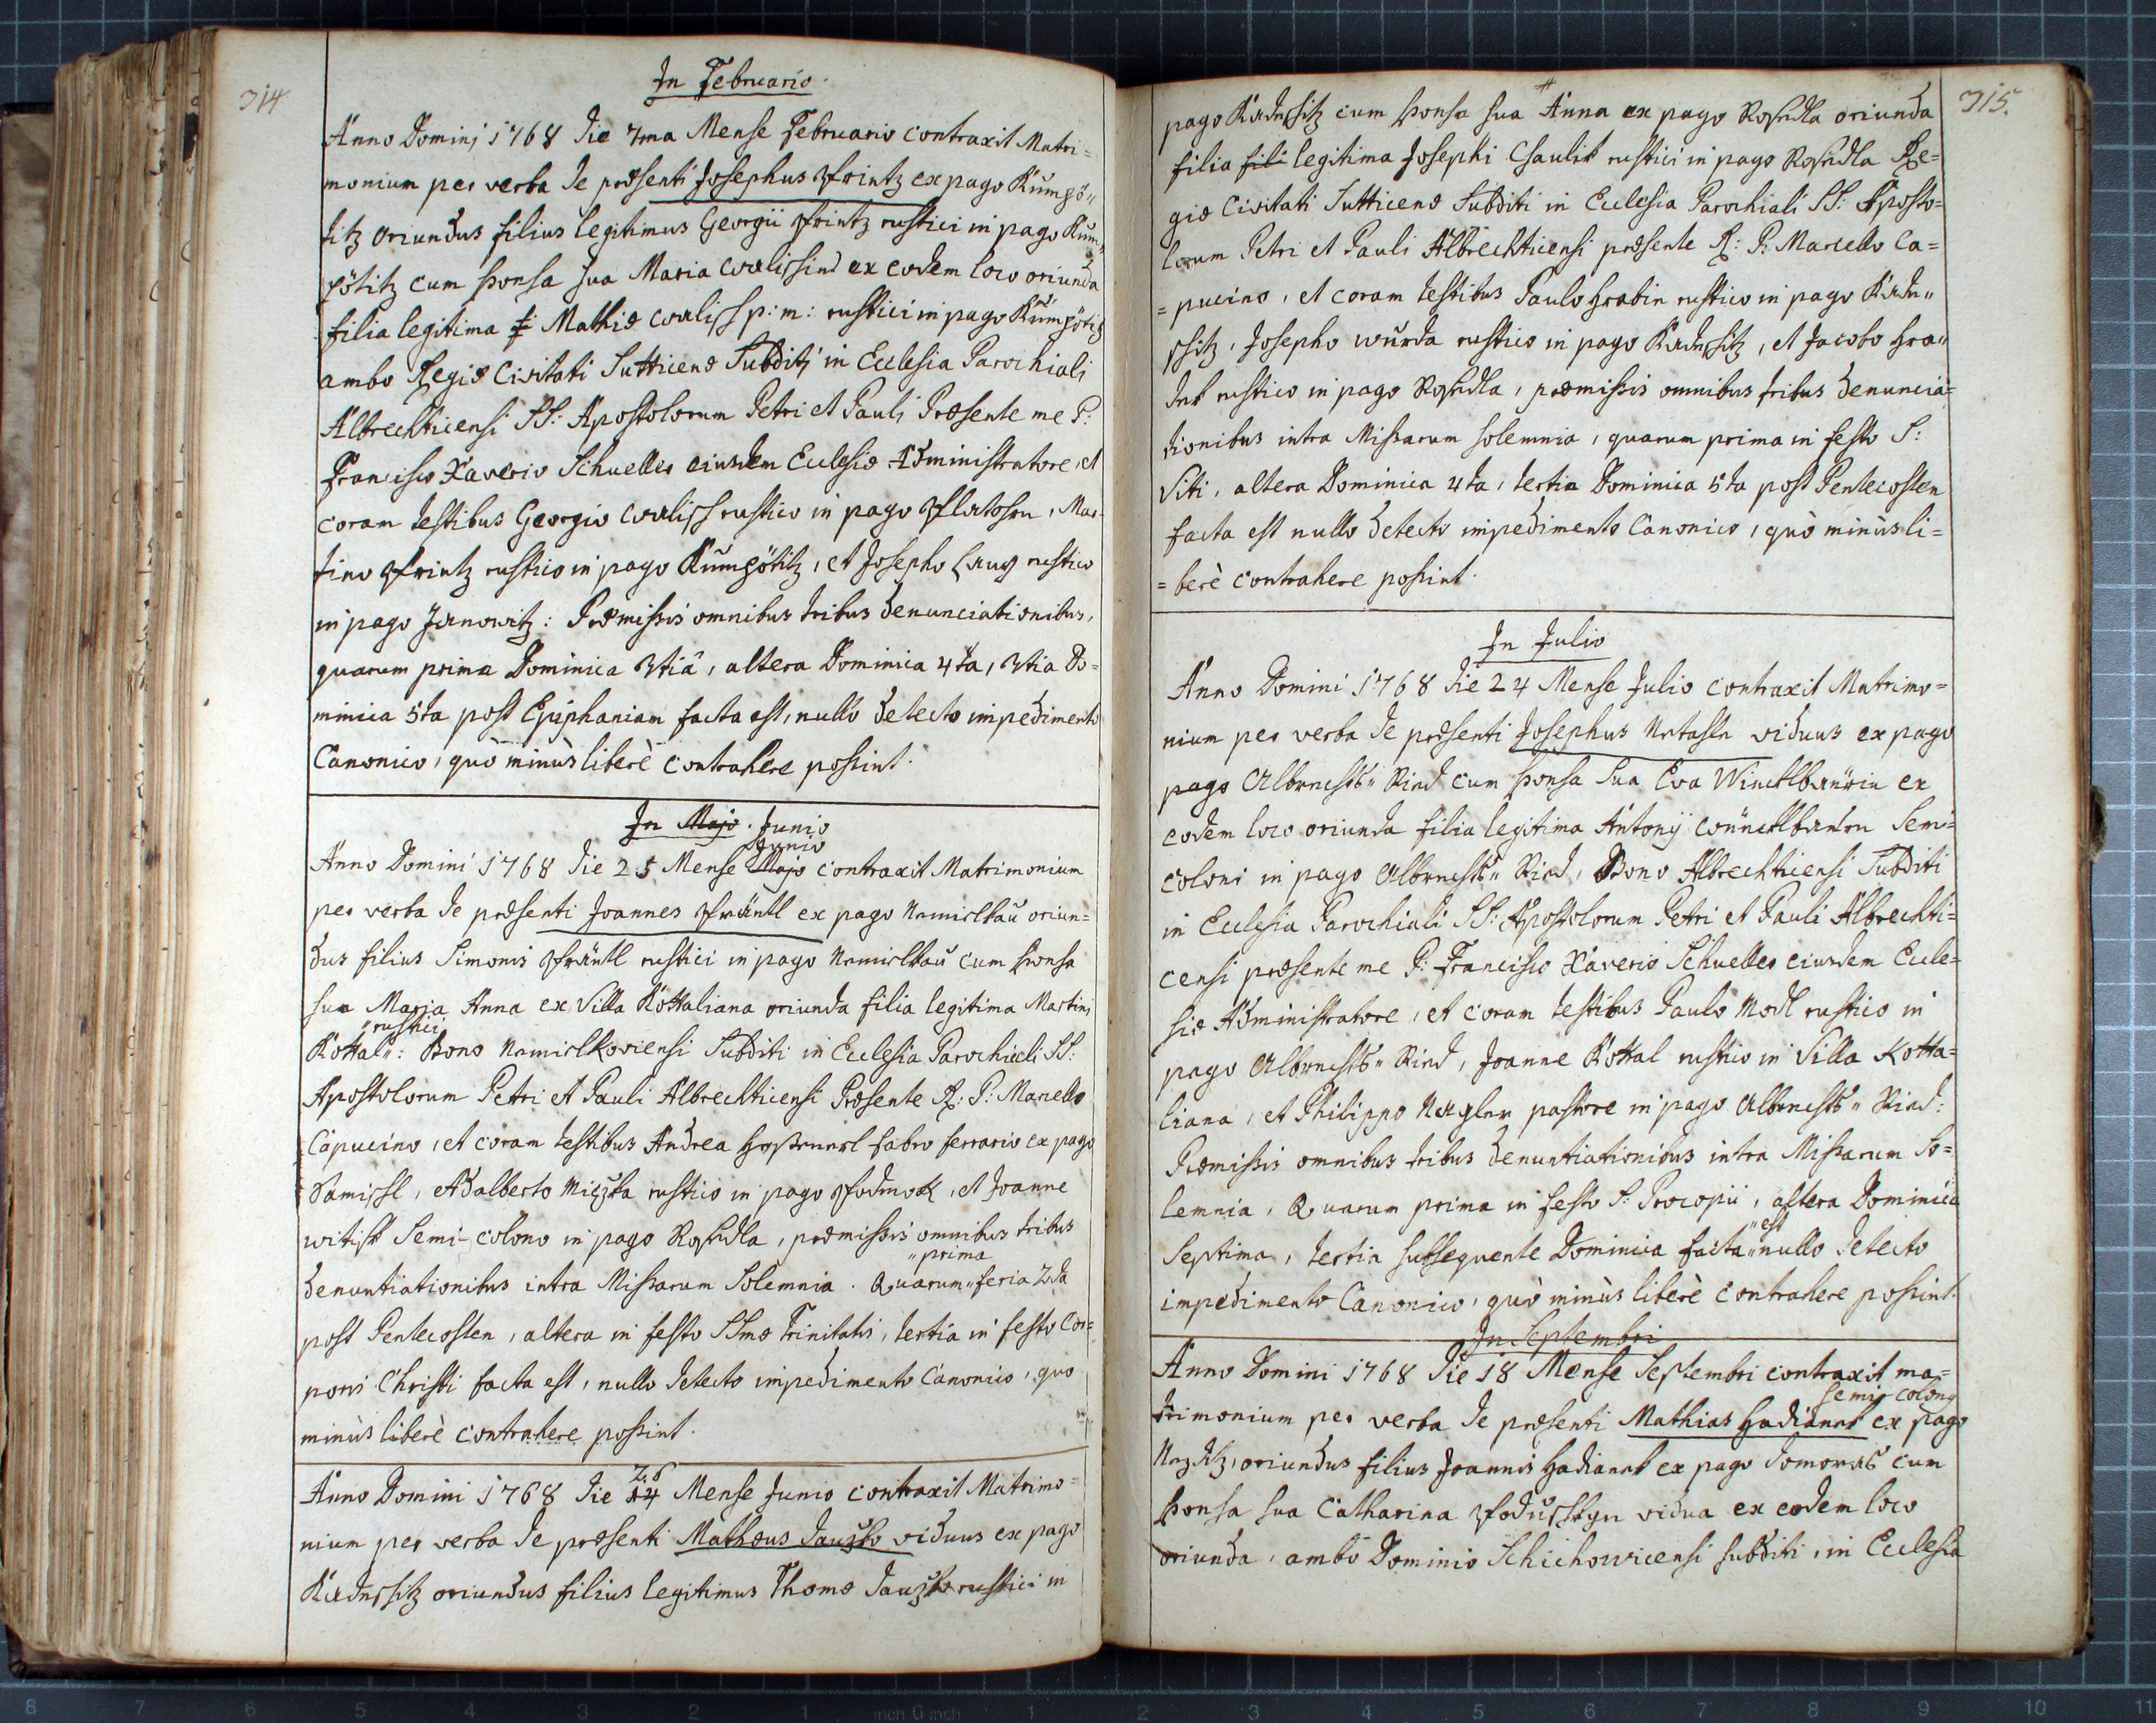 314.
In Februario.
Anno Domini 1768 Die 7ma Mense Februario contraxit Matri=
monium per verba de præsenti Josephus Printz ex pago Kumpö„
titz oriundus filius legitimus Georgii Printz rustici in pago Kum„
pötitz cum sponsa sua Maria ex eodem loco oriunda
filia legitima Mathiæ p: m: rustici in pago Kumpötitz
ambo Regiæ Civitati Sutticenæ Subditi in Ecclesia Parochiali
Albrechticensi SS: Apostolorum Petri et Pauli Præsente me P:
Francisco Xaverio Schueller eiusdem Ecclesiæ Administratore, et
coram testibus Georgio rustico in pago, Mar=
tino Printz rustico in pago Kumpötitz, et Josepho rustico
in pago Janowitz: Præmissis omnibus tribus denunciationibus,
quarum prima Dominica 3tiâ, altera Dominica 4ta, 3tia Do=
minica 5ta post Epiphaniam facta est, nullo detecto impedimento
Canonico, quò minùs liberè contrahere possint.
In Majo. Junio
Junio
Anno Domini 1768 Die 25 Mense Majo contraxit Matrimonium
per verba de præsenti Joannes Präntl ex pago Nemielkau oriun=
dus filius Simonis Präntl rustici in pago Nemielkau cum sponsa
sua Maria Anna ex Villa Kottaliana oriunda filia legitima Martini
„rustici
Kottal„: Bono Nemielkoviensi Subditi in Ecclesia Parochiali SS:
Apostolorum Petri et Pauli Albrechticensi Præsente R: P: Marcello
Capucino, et coram testibus Andrea fabro ferrario ex pago
Damissl, Adalberto rustico in pago Podmok, et Joanne
Semi-colono in pago, præmissis omnibus tribus
„prima
denuntiationibus intra Missarum Solemnia. Quarum„ feria 2da
post Pentecosten, altera in festo SSmæ Trinitatis, tertia in festo Cor=
poris Christi facta est, nullo detecto impedimento Canonico, quo
minùs liberè contrahere possint.
26
Anno Domini 1768 Die 14 Mense Junio contraxit Matrimo=
nium per verba de præsenti Mathæus viduus ex pago
Kadeschitz oriundus filius legitimus Thomæ rustici in
315.
pago Kadeschitz cum sponsa sua Anna ex pago oriunda
filia fili legitima Josephi Csaulik rustici in pago Re=
giæ Civitati Sutticenæ Subditi in Ecclesia Parochiali SS: Aposto=
lorum Petri et Pauli Albrechticensi præsente R: P: Marcello Ca=
=pucino, et coram testibus Paulo Hrabin rustico in pago Kade„
schitz, Josepho Wurda rustico in pago Kadeschitz, et Jacobo Hra„
dek rustico in pago, præmissis omnibus tribus denuncia=
tionibus intra Missarum solemnia, quarum prima in festo S:
Viti, altera Dominica 4ta, tertia Dominica 5ta post Pentecosten
facta est nullo detecto impedimento Canonico, quò minùs li=
=berè contrahere possint.
In Julio
Anno Domini 1768 Die 24 Mense Julio contraxit Matrimo=
nium per verba de præsenti Josephus viduus ex pago
pago Albrechts„Ried cum sponsa sua Eva ex
eodem loco oriunda filia legitima Antonij Semi=
coloni in pago Albrechts„Ried, Bono Albrechticensi Subditi
in Ecclesia Parochiali SS: Apostolorum Petri et Pauli Albrechti=
censi præsente me P: Francisco Xaverio Schueller eiusdem Eccle=
siæ Administratore, et coram testibus Paulo Modl rustico in
pago Albrechts„Ried, Joanne Kottal rustico in Villa Kotta=
liana, et Philippo Nagler pastore in pago Albrechts„Ried:
Præmissis omnibus tribus denuntiationibus intra Missarum So=
lemnia, Quarum prima in festo S: Procopii, altera Dominica
est
Septima, tertia subsequente Dominica facta„ nullo detecto
impedimento Canonico, quò minùs liberè contrahere possint.
In Septembri
Anno Domini 1768 Die 18 Mense Septembri contraxit ma=
Semi colony
trimonium per verba de præsenti Mathias ex pago
oriundus filius Joannis ex pago cum
sponsa sua Catharina vidua ex eodem loco
oriunda, ambo Dominio Schichowicensi subditi, in Ecclesia